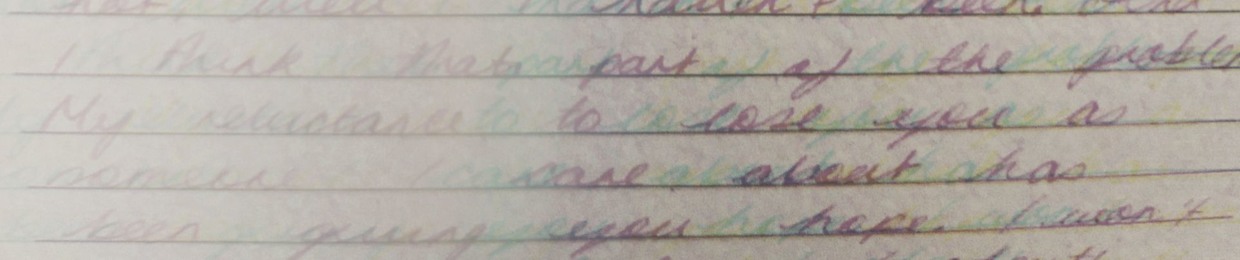 I think that part of the problem
My reluctance to lose you as
someone I care about has
been giving you hope. I won't